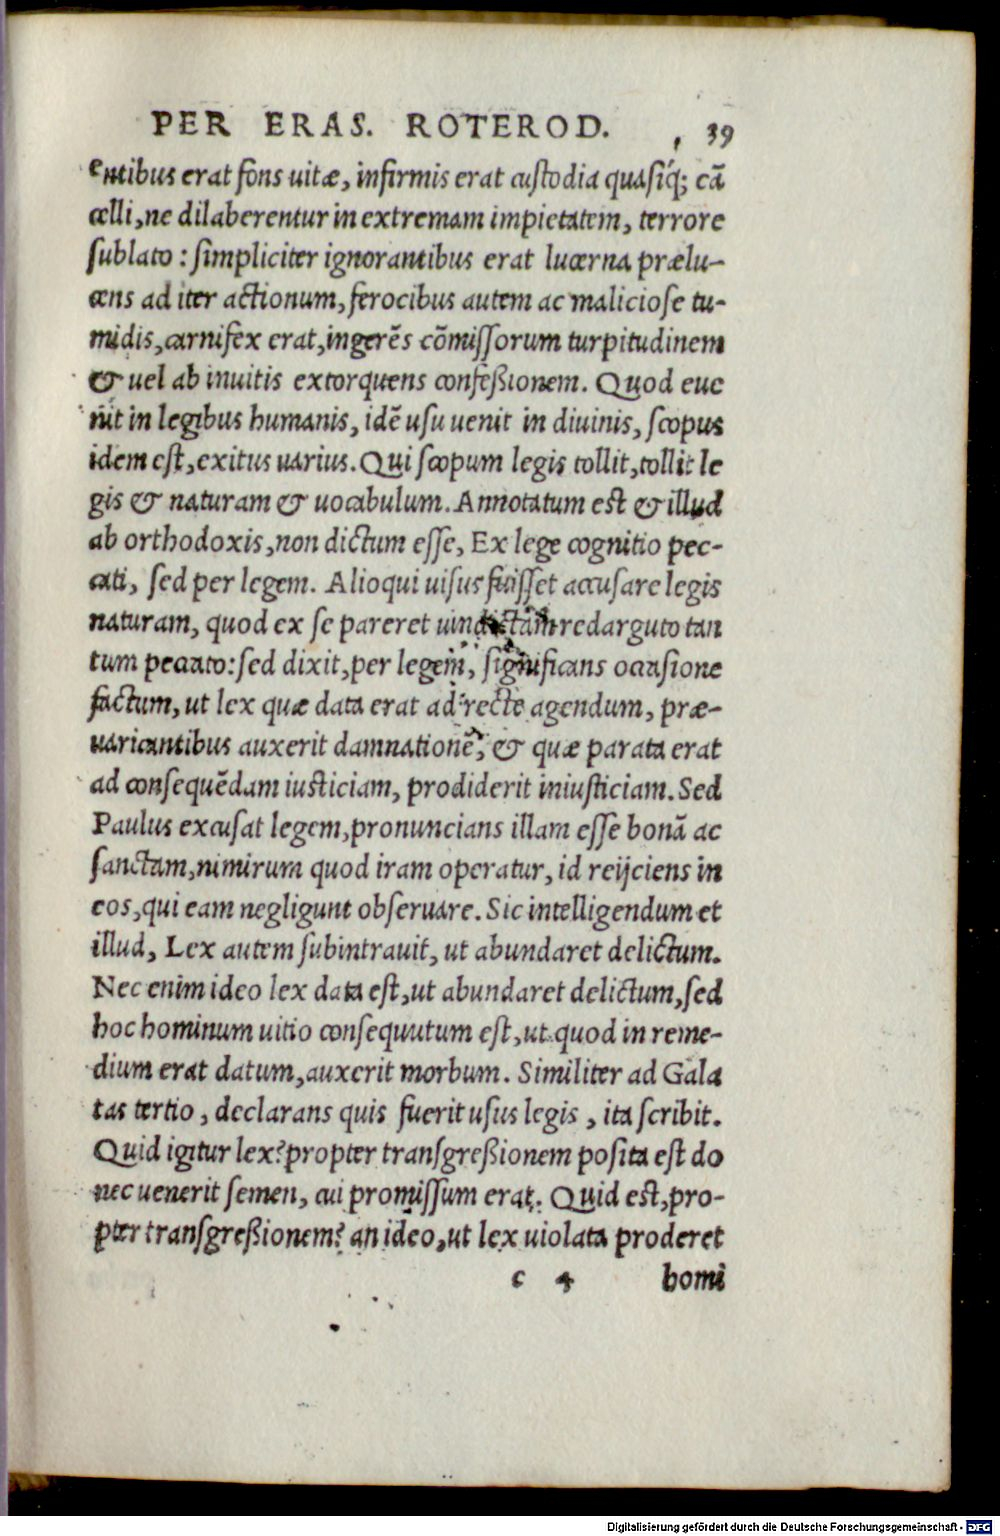 PER ERAS. ROTEROD. 39
entibus erat fons uitæ, infirmis erat custodia quasiq́; cā
celli, ne dilaberentur in extremam impietatem, terrore
sublato : simpliciter ignorantibus erat lucerna prælu-
cens ad iter actionum, ferocibus autem ac maliciose tu-
midis, carnifex erat, ingerēs cōmissorum turpitudinem
& uel ab inuitis extorquens confeßionem. Quod eue
nit in legibus humanis, idē usu uenit in diuinis, scopus
idem est, exitus uarius. Qui scopum legis tollit, tollit le
gis & naturam & uocabulum. Annotatum est & illud
ab orthodoxis, non dictum esse, Ex lege cognitio pec-
cati, sed per legem. Alioqui uisus fuisset accusare legis
naturam, quod ex se pareret uindictam redarguto tan
tum peccato: sed dixit, per legem, significans occasione
factum, ut lex quæ data erat ad recte agendum, præ-
uaricantibus auxerit damnationē, & quæ parata erat
ad consequēdam iusticiam, prodiderit iniusticiam. Sed
Paulus excusat legem, pronuncians illam esse bonā ac
sanctam, nimirum quod iram operatur, id reijciens in
eos, qui eam negligunt obseruare. Sic intelligendum et
illud, Lex autem subintrauit, ut abundaret delictum.
Nec enim ideo lex data est, ut abundaret delictum, sed
hoc hominum uitio consequutum est, ut quod in reme-
dium erat datum, auxerit morbum. Similiter ad Gala
tas tertio, declarans quis fuerit usus legis, ita scribit.
Quid igitur lex? propter transgreßionem posita est do
nec uenerit semen, cui promissum erat. Quid est, pro-
pter transgreßionem? an ideo, ut lex uiolata proderet
c 4 homi
Digitalisierung gefördert durch die Deutsche Forschungsgemeinschaft - DFG